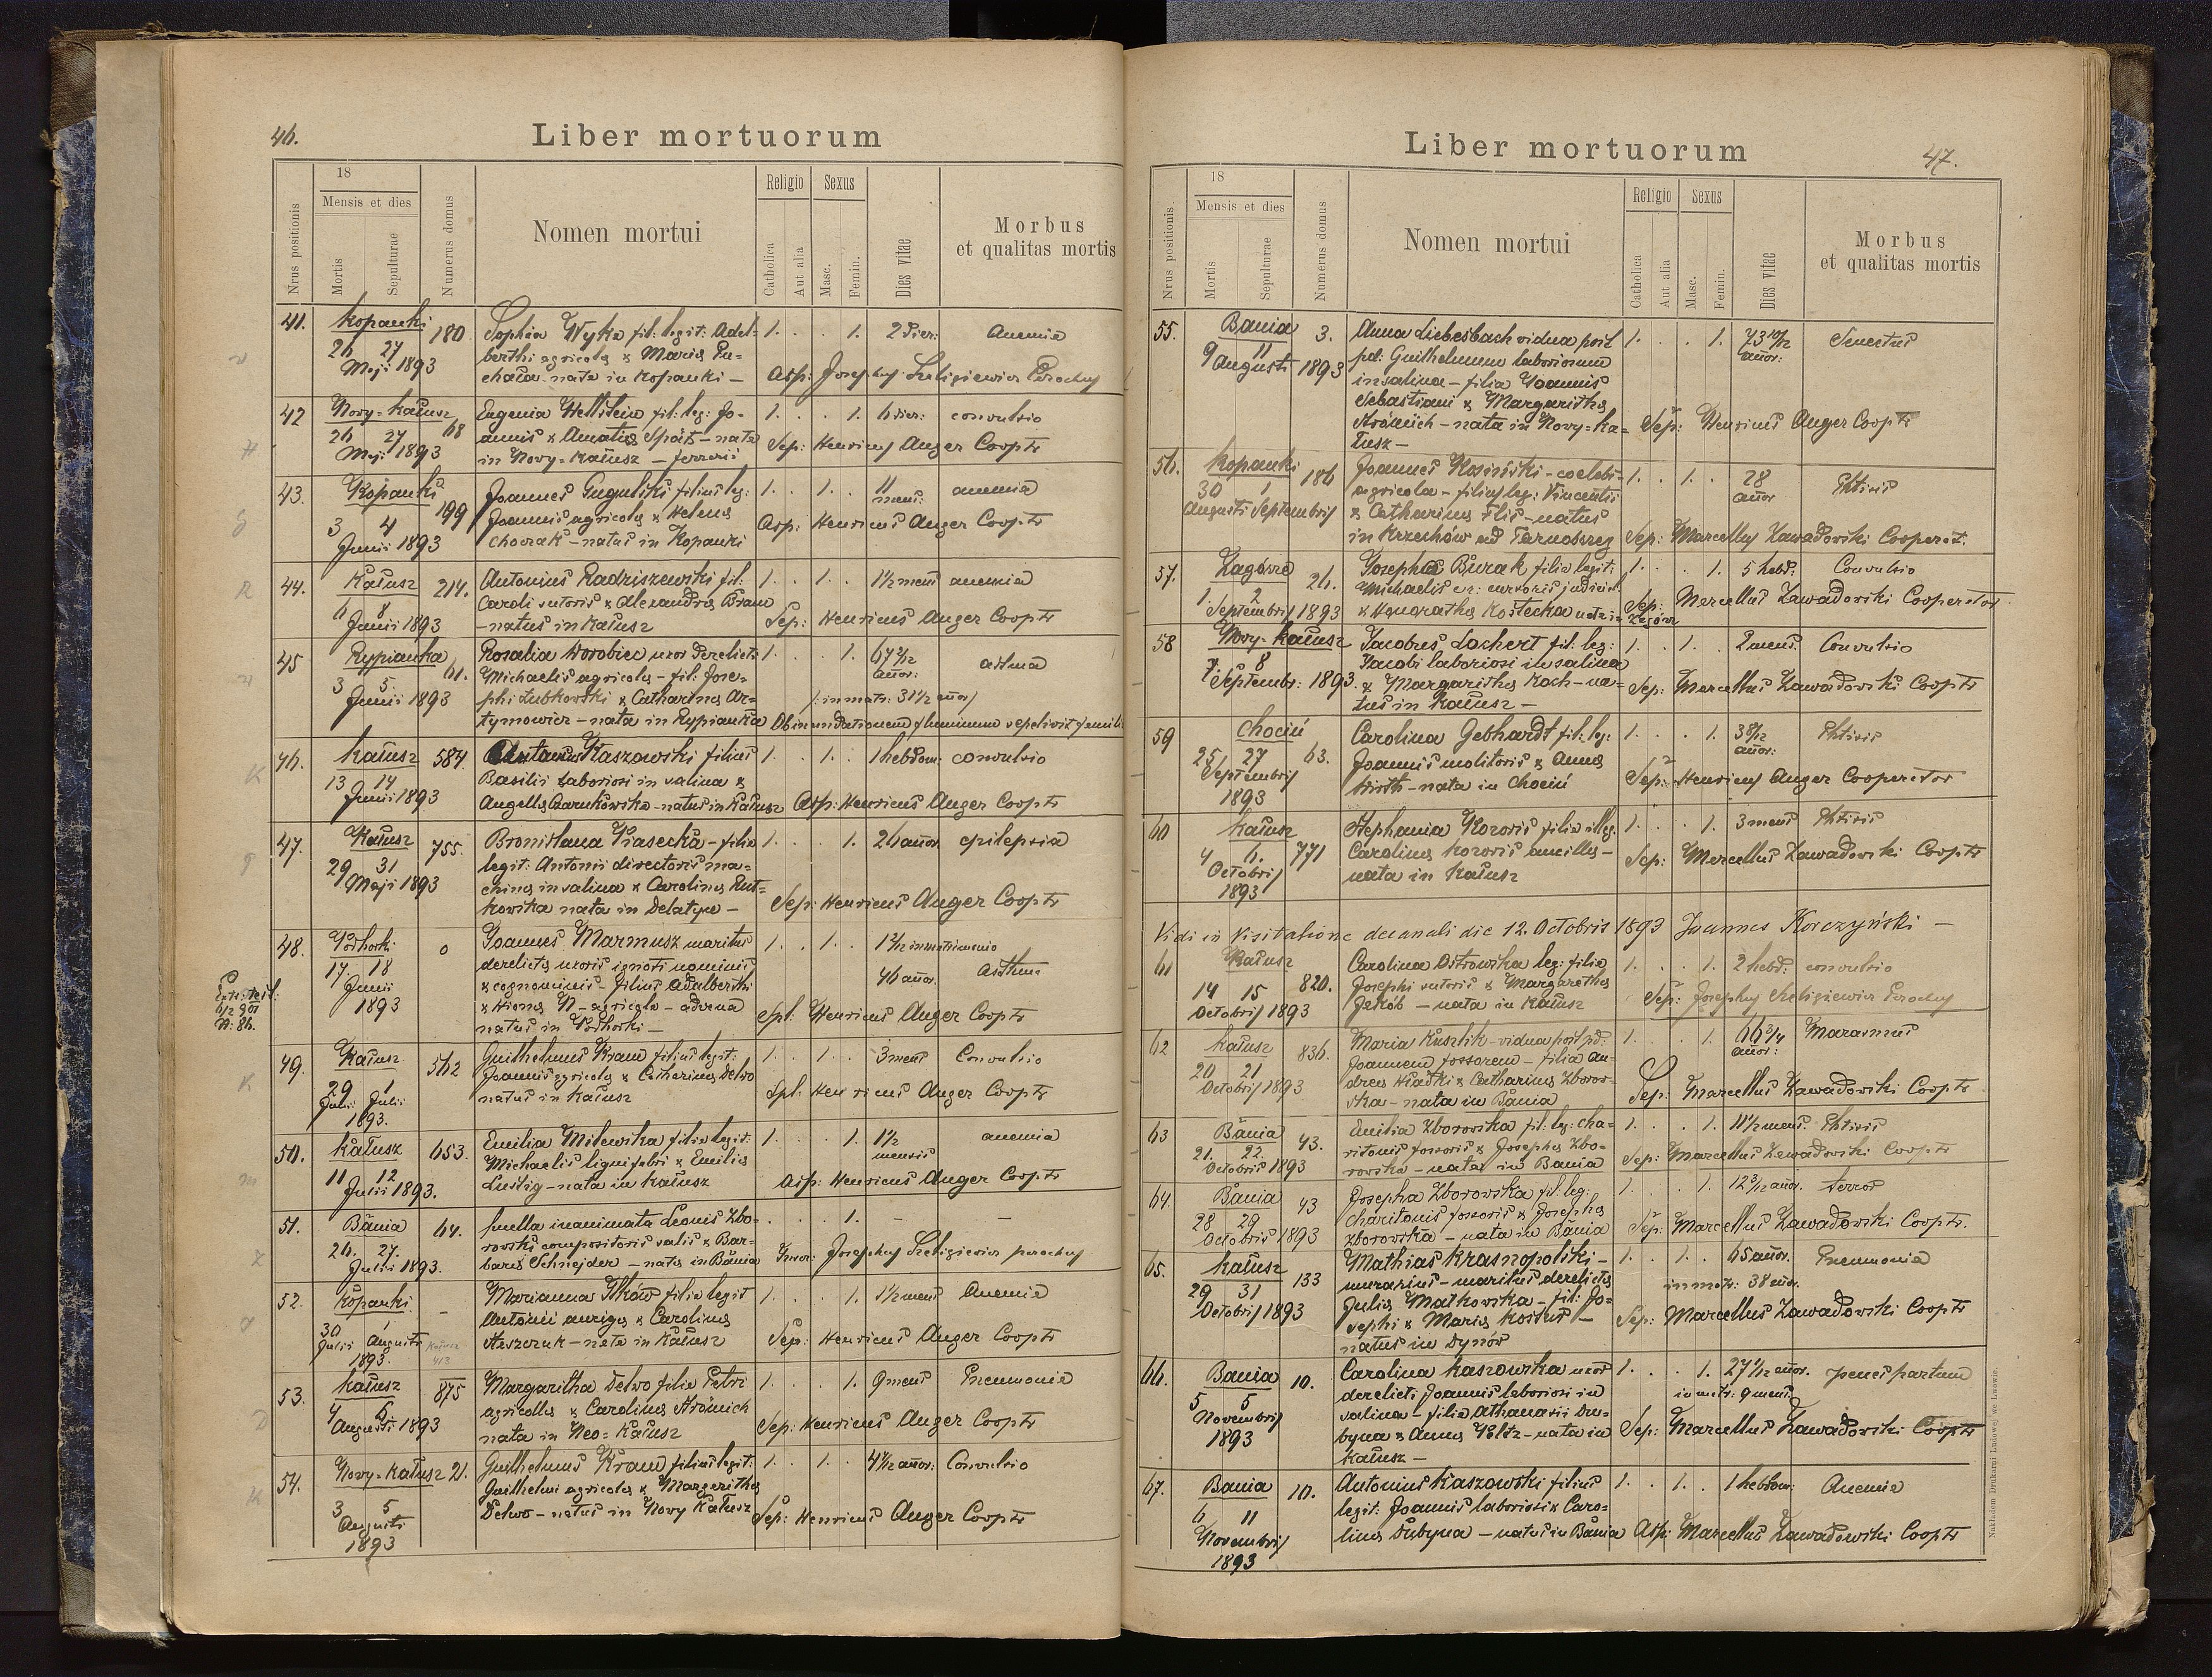 46.
Liber mortuorum
18
Mensis et dies
Religio
Sexus
Nrus positionis
Mortis
Sepulturae
Numerus domus
Nomen mortui
Catholica
Aut alia
Masc.
Femin.
Dies vitae
Morbus
et qualitas mortis
41. Kopanki 180 Sophia Wyka fil: legit: Adal-
26 27 berthi agricolae & Mariae Pu-
Maji 1893 chała nata in Kopanki –
1. 1. 2 dier: Anemia
Asp: Josephus Szeligiewicz Parochus
42 Nowy-Kałusz 68 Eugenia Wellstein fil: leg: Jo-
26 27 annis & Amaliae Späth – nata
Maji 1893 in Nowy-Kałusz –
1. 1. 6 dier: convulsio
Sep: Henricus Anger Cooptr
43. Kopanki 199 Joannes Gugulski filius leg:
3 4 Joannis agricolae & Helenae
Junii 1893 – natus in Kopanki
1. 1. 11 mens: anemia
Asp: Henricus Anger Cooptr
44. Kałusz 214. Antonius Radziszewski fil:
6 8 Caroli sutoris & Alexandrae
Junii 1893 – natus in Kałusz
1. 1. 1½ mens anemia
Sep: Henricus Anger Cooptr
45 Rypianka 61. Rosalia Worobiec uxor derelicti
3 5 Michaelis agricolae – fil: Jose-
Junii 1893 phi Łubkowski & Catharinae Ar-
tymowicz – nata in Rypianka
1. 1. 67 2/12 annor: astma
/: in matr: 31½ annor/
Ob inundationem fluminum sepelivit
46. Kałusz 584. Antonius Kaszowski filius
13 14 Basilii laboriosi in salina &
Junii 1893 Angelae – natus in Kałusz
1. 1. 1 hebdom: convulsio
Asp: Henricus Anger Cooptr
47. Kałusz 755. Bronisłava Piasecka – filia
29 31 legit: Antonii directoris ma-
Maji 1893 chinae in salina & Carolinae Rut-
kowska nata in Delatyn –
1. 1. 26 annor epilepsia
Sep: Henricus Anger Cooptr
48. Podhorki 0 Joannes Marmusz maritus
17. 18 derelictae uxoris ignoti nominis
Junii & cognominis – filius Adalberthi
1893 N – agricola – advena
natus in Podhorki –
1. 1. in matrimonio
46 annor. Asthma
Spl: Henricus Anger Cooptr
49. Kałusz 562 Guilhelmus Kram filius legit:
29 1 Joannis agricolae & Catharinae Delwo
Julii natus in Kałusz
1893.
1. 1. 3 mens Convulsio
Spl: Henricus Anger Cooptr
50. Kałusz 653. Emilia Milewska filia legit:
11 12 Michaelis lignifabri & Emiliae
Julii 1893. Lustig – nata in Kałusz
1. 1. 1½ mensis anemia
Asp: Henricus Anger Cooptr
51. Bania 64. Puella inanimata Leonis Zbo-
26. 27. rowski compositoris salis & Bar-
Julii 1893. barae Schnejder – nata in Bania
1. – –
Josephus Szeligiewicz parochus
52. Kopanki – Marianna Ilków filia legit
30 1 Antonii aurigae & Carolinae
Julii Augusti – nata in Kałusz
1893.
Kałusz
413
1. 1. 1½ mens Anemia
Sep: Henricus Anger Cooptr
53. Kałusz 875 Margaritha Delwo filia Petri
4 6 agricolae & Carolinae Strömich
Augusti 1893 nata in Neo-Kałusz
1. 1. 9 mens Pneumonia
Sep: Henricus Anger Cooptr
54. Nowy-Kałusz 21. Guilhelmus Kram filius legit:
3 5 Guilhelmi agricolae & Margarithae
Augusti Delwo – natus in Nowy Kałusz
1893
1. 1. annor: Convulsio
Sep: Henricus Anger Cooptr
Liber mortuorum
47.
18
Mensis et dies
Religio
Sexus
Nrus positionis
Mortis
Sepulturae
Numerus domus
Nomen mortui
Catholica
Aut alia
Masc.
Femin.
Dies vitae
Morbus
et qualitas mortis
55. Bania 3. Anna Liebesbach vidua post
9 11 pd: Guilhelmum laboriosum
Augusti 1893 in salina – filia Joannis
Sebastiani & Margarithae
Strömich – nata in Nowy-Ka-
łusz –
1. 1. 73 10/12 annor: Senectus
Sep: Henricus Anger Cooptr
56. Kopanki 186 Joannes Kosiński – coelebs –
30 1 agricola – filius leg: Vincentii
Augusti Septembris & Catharinae – natus
in Krzechów ad Tarnobrzeg
1. 1. 28 annor Phtisis
Sep: Marcellus Zawadowski Cooperat.
57. Zagórze 26. Josepha Burak filia legit:
1. 2 Michaelis
Septembris 1893 Kostecka nata in Zagórze
1. 1. 5 hebd: Convulsio
Sep: Marcellus Zawadowski Cooperator
58 Nowy-Kałusz Jacobus Lachert fil: leg:
7. 8 Jacobi laboriosi in salina
Septembr: 1893. & Margarithae Koch – na-
tus in Kałusz –
1. 1. 2 mens. Convulsio
Sep: Marcellus Zawadowski Cooptr
59 Chocin 63. Carolina Gebhardt fil: leg:
25 27 Joannis molitoris & Annae
Septembris Wirth – nata in Chocin
1893
1. 1. annor: Phtisis
Sep: Henricus Anger Cooperator
60 Kałusz 771 Stephania Kozoris filia illeg.
4 6. Carolinae Kozoris ancillae –
Octobris nata in Kałusz
1893
1. 1. 3 mens Phtisis
Sep: Marcellus Zawadowski Cooptr
Vidi in Visitatione decanali die 12. Octobris 1893 Joannes Korczyński –
61 Kałusz 820. Carolina Ostrowska leg: filia
14 15 Josephi sutoris & Margarethae
Octobris 1893 Jakób – nata in Kałusz
1. 1. 2 hebd: convulsio
Sep: Josephus Szeligiewicz Parochus
62 Kałusz 836. Maria Kuszlik – vidua post pd:
20 21 Joannem fossorem – filia An-
Octobris 1893 dreae & Catharinae Zborow-
ska – nata in Bania
1. 1. 66 annor: Marasmus
Sep: Marcellus Zawadowski Cooptr
63 Bania 43. Emilia Zborowska fil: leg: Cha-
21. 22. ritonis fossoris & Josephae Zbo-
Octobris 1893 rowska – nata in Bania
1. 1. 11½ mens. Phtisis
Sep: Marcellus Zawadowski Cooptr
64. Bania 43 Josepha Zborowska fil: leg:
28 29 Charitonis fossoris & Josephae
Octobris 1893 Zborowska – nata in Bania
1. 1. 12 3/12 annor. terror
Sep: Marcellus Zawadowski Cooptr.
65. Kałusz 133 Mathias Krasnopolski –
29 31 murarius – maritus derelictae
Octobris 1893 Juliae Małkowska – fil: Jo-
sephi & Mariae –
natus in Dynów
1. 1. 65 annor. Pneumonia
in matr: 38 annor.
Sep: Marcellus Zawadowski Cooptr
66. Bania 10. Carolina Kaszowska uxor
5 5 derelicti Joannis laboriosi in
Novembris salina – filia Athanasii Du-
1893 byna & Annae – nata in
Kałusz –
1. 1. annor. penes partum
in matr: 9 mens.
Sep: Marcellus Zawadowski Cooptr
67. Bania 10. Antonius Kaszowski filius
6 11 legit: Joannis laboriosi & Caro-
Novembris linae Dubyna – natus in Bania
1893
1. 1. 1 hebdom: Anemia
Asp: Marcellus Zawadowski Cooptr
Nakładem Drukarni Ludowej we Lwowie.